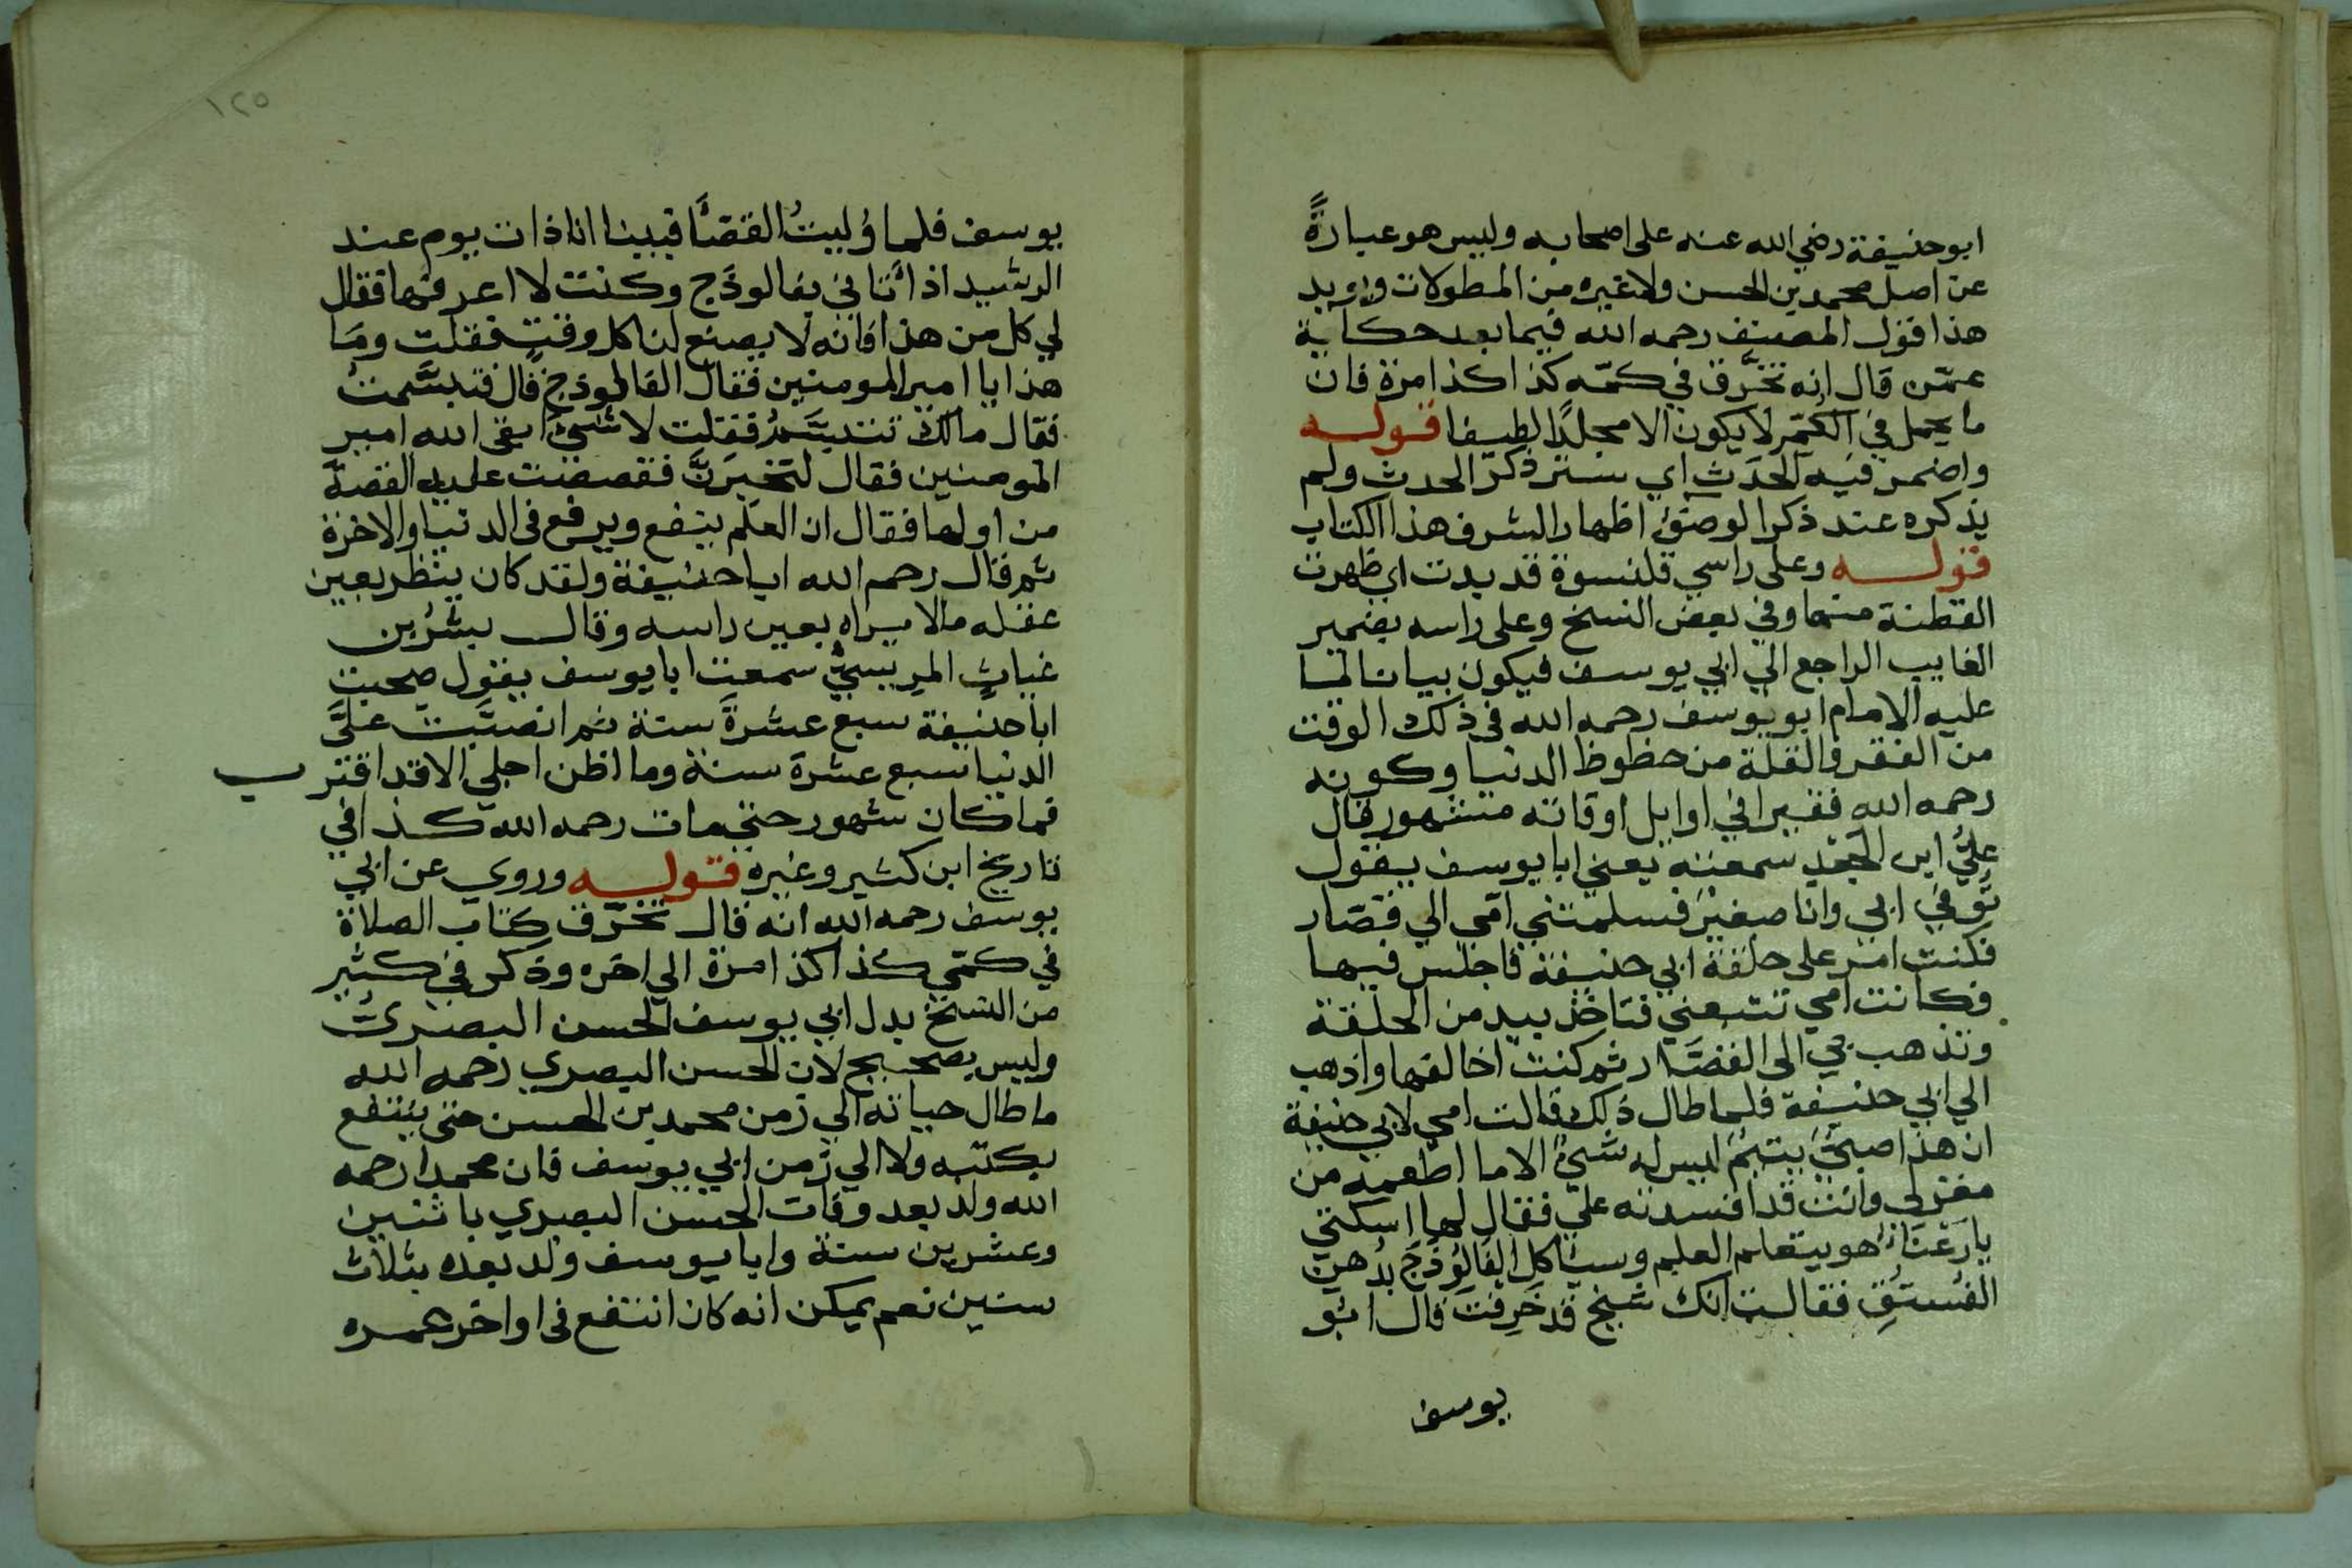 ابو حنيفة رضي الله عنه على اصحابه وليس هو عبارةً
عن اصل محمد بن الحسن ولا غيره من المطولات ويويد
هذا قول المصنف رحمه الله فيما بعد حكاية
عمّن قال انه تخرَّق في كمّه كذا كذا مرة فان
ما يحمل في الكُمّ لا يكون الا مجلدًا لطيفا قوله
واضمر فيه الحدَث اي ستر ذكر الحدث ولم
يذكره عند ذكر الوضوء اظهار الشرف هذا الكتاب
قوله وعلى راسي قلنسوة قد بدت اي ظهرت
القطنة منها وفي بعض النسخ وعلى راسه بضمير
الغايب الراجع الي ابي يوسف فيكون بيانا لما
عليه الامام ابو يوسف رحمه الله في ذلك الوقت
من الفقر والقلة من حظوظ الدنيا وكونه
رحمه الله فقيرا في اوايل اوقاته مشهور قال
عليُّ ابن الجَعْد سمعته يعني ابا يوسف يقول
تُوُفي ابي وانا صغير فسلمتني امّي الي قصّار
فكنت امر على حلقة ابي حنيفة فاجلس فيها
فكانت امي تتبعني فتاخذ بيد من الحلقة
وتذهب بي الى القصَّار ثم كنت اخالفها واذهب
الي ابي حنيفة فلما طال ذلك قالت امي لابي حنيفة
ان هذا صبيٌّ يتيمٌ ليس له شيٌ الا ما اطعمه من
مغزلي وانت قد افسدته عليّ فقال لها اسكتي
يا رَعْنَا هو يتعلم العلم وسياكل الفَالُوذَج بدُهن
الفُستُقِ فقالت انك شيخ قد خَرِفتَ قال ابو
يوسف
١٢٥
يوسف فلما وُليتُ القضَأَ فبينا انا ذات يوم عند
الرشيد اذ أتاني بفالوذَج وكنت لا اعرفها فقال
لي كل من هذا فانه لا يصنع لنا كل وقتٍ فقلت ومَا
هذا يا امير المومنين فقال الفالوذج قال فتبسَّمتُ
فقال مالك تتبسَّمُ فقلت لا شيء ابقى الله امير
المومنين فقال لتخبرَنَّ فقصصت عليه القصة
من اولها فقال ان العلم ينفع ويرفع في الدنيا والاخرة
ثم قال رحم الله ابا حنيفة ولقد كان ينظر بعين
عقله ما لا يراه بعين راسه وقال بِشرُ بن
غياثٍ المريسيُّ سمعت ابا يوسف يقول صحبت
ابا حنيفة سبع عشرةَ سنة ثم انصبَّت علَيَّ
الدنيا سبع عشرة سنة وما اظن اجلي الا قد اقترب
فما كان شهور حتي مات رحمه الله كذا في
تاريخ ابن كثير وغيره قوله وروي عن ابي
يوسف رحمه الله انه قال تخرّق كتاب الصلاة
في كمّي كذا كذا مرة الي اخره وذكر في كثير
من النسخ بدل ابي يوسف الحسن البصريُّ
وليس بصحيح لان الحسن البصري رحمه الله
ما طال حياته الي زمن محمد بن الحسن حتى ينتفع
بكتبه ولا الي زمن ابي يوسف فان محمدا رحمه
الله ولد بعد وفات الحسن البصري باثنين
وعشرين سنة وابا يوسف ولد بعده بثلاث
سنين نعم يمكن انه كان انتفع في اواخر عمره